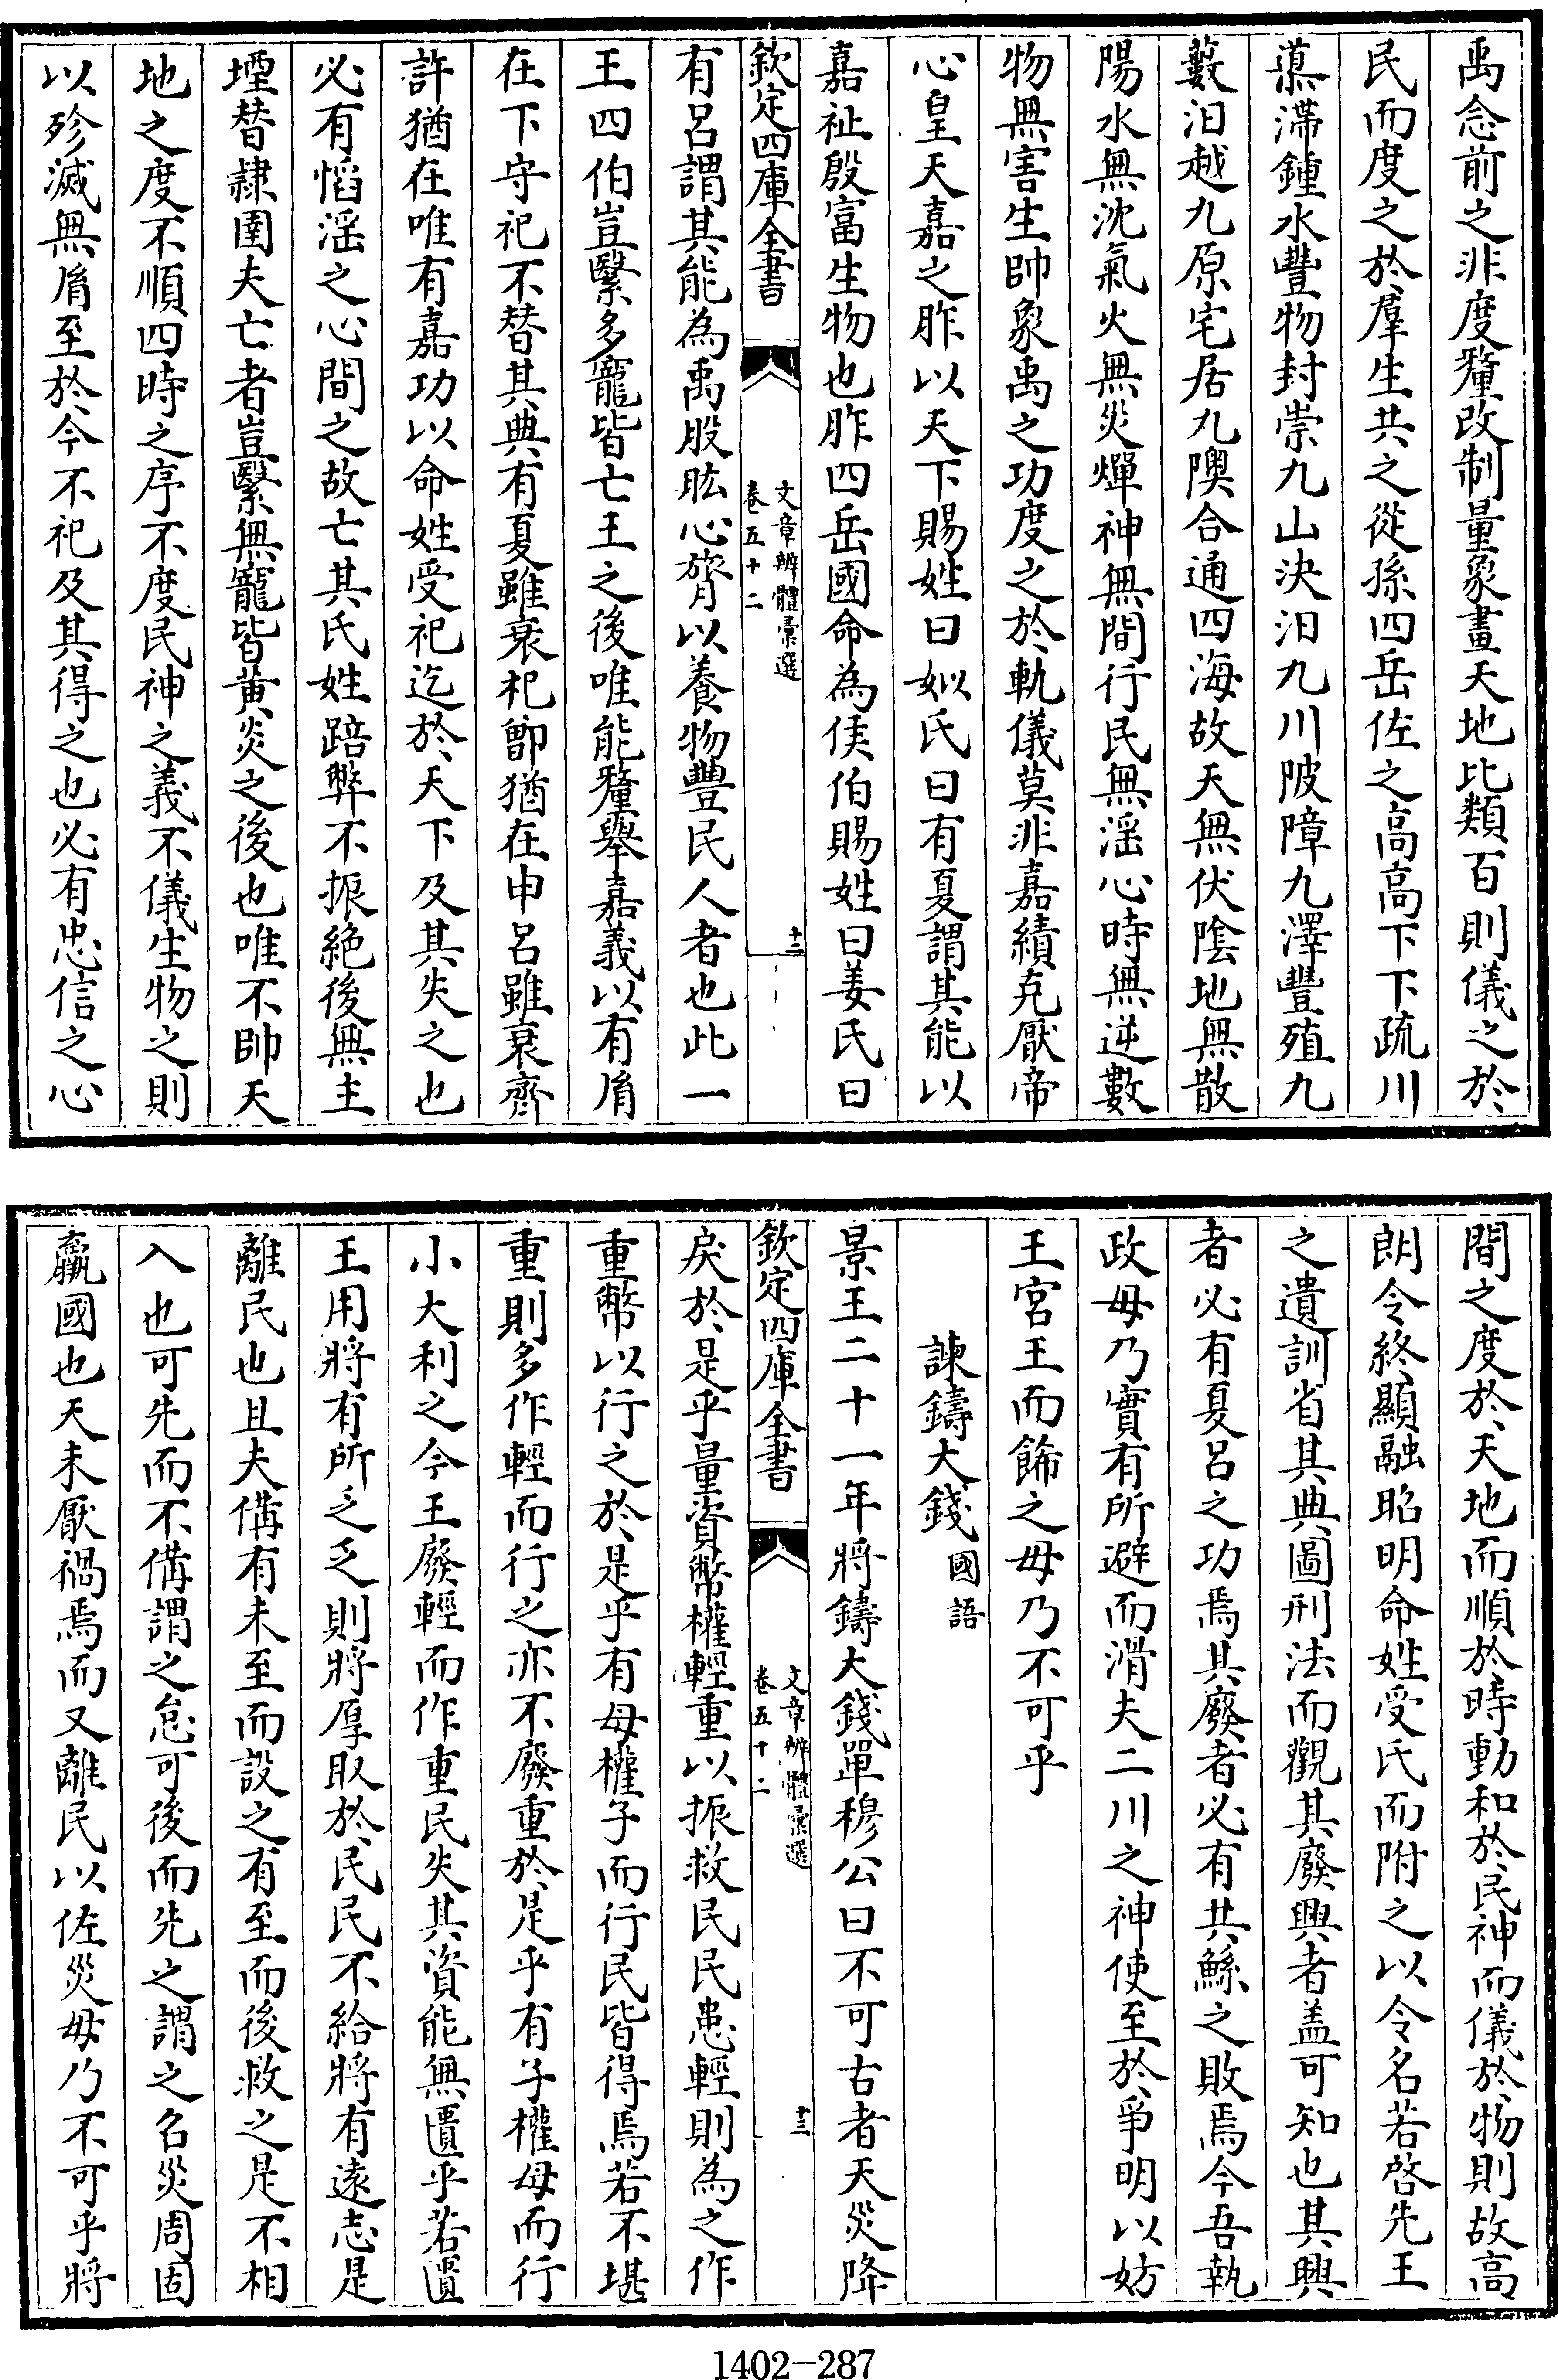 禹念前之非度釐改制量象畫天地比類百則儀之於
民而度之於羣生共之從孫四岳佐之高高下下疏川
𨗳滯鍾水豐物封崇九山決汨九川陂障九澤豐殖九
藪汨越九原宅居九隩合通四海故天無伏陰地無散
陽水無沈氣火無災燀神無間行民無滛心時無逆數
物無害生帥象禹之功度之於軌儀莫非嘉績克厭帝
心皇天嘉之胙以天下賜姓曰姒氏曰有夏謂其能以
嘉祉殷富生物也胙四岳國命為侯伯賜姓曰姜氏曰
欽定四庫全書 文章辨體彙選 卷五十二 十二
有呂謂其能為禹股肱心膂以養物豐民人者也此一
王四伯豈繄多寵皆亡王之後唯能釐舉嘉義以有𦙍
在下守祀不替其典有夏雖衰杞鄫猶在申呂雖衰齊
許猶在唯有嘉功以命姓受祀迄於天下及其失之也
必有慆滛之心間之故亡其氏姓踣弊不振絶後無主
堙替隷圉夫亡者豈繄無寵皆黄炎之後也唯不帥天
地之度不順四時之序不度民神之義不儀生物之則
以殄滅無𦙍至於今不祀及其得之也必有忠信之心
間之度於天地而順於時動和於民神而儀於物則故高
朗令終顯融昭明命姓受氏而附之以令名若啓先王
之遺訓省其典圖刑法而觀其廢興者盖可知也其興
者必有夏呂之功焉其廢者必有共鯀之敗焉今吾執
政毋乃實有所避而滑夫二川之神使至於爭明以妨
王宮王而飾之毋乃不可乎
諫鑄大錢 國語
景王二十一年將鑄大錢單穆公曰不可古者天災降
欽定四庫全書 文章辨體彙選 卷五十二 十三
戾於是乎量資幣權輕重以振救民民患輕則為之作
重幣以行之於是乎有母權子而行民皆得焉若不堪
重則多作輕而行之亦不廢重於是乎有子權母而行
小大利之今王廢輕而作重民失其資能無匱乎若匱
王用將有所乏乏則將厚取於民民不給將有遠志是
離民也且夫備有未至而設之有至而後救之是不相
入也可先而不備謂之怠可後而先之謂之名災周固
羸國也天未厭禍焉而又離民以佐災毋乃不可乎將
1402—287